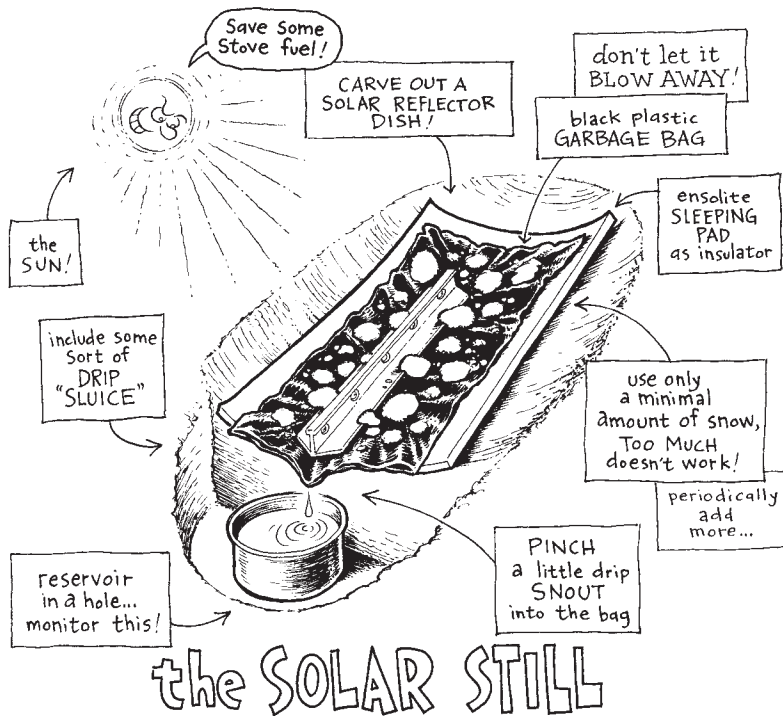 Save Some
Stove fuel!
CARVE OUT A
SOLAR REFLECTOR
DISH!
don't let it
BLOW AWAY!
black plastic
GARBAGE BAG
ensolite
SLEEPING
PAD
as insulator
the
SUN!
include some
sort of
DRIP
"SLUICE"
use only
a minimal
amount of snow,
TOO MUCH
doesn't work!
periodically
add
more...
PINCH
a little drip
SNOUT
into the bag
reservoir
in a hole...
monitor this!
the SOLAR STILL